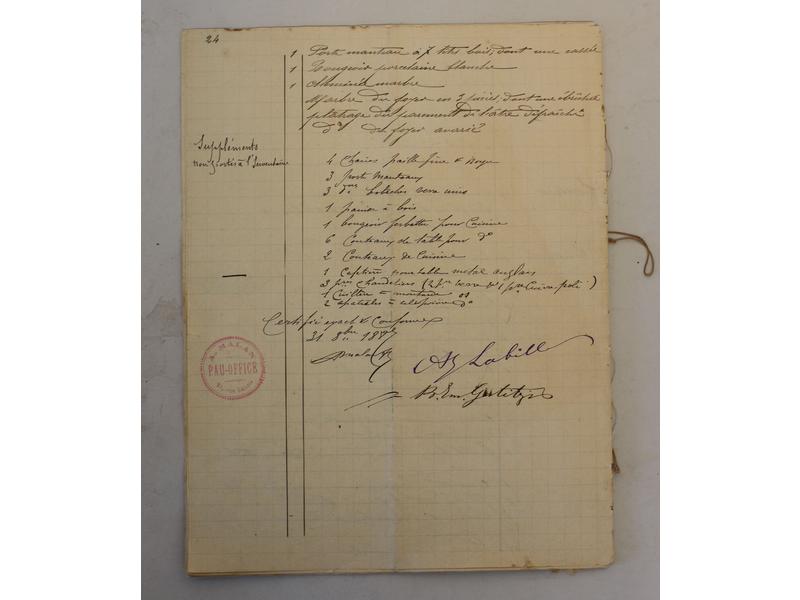 24
1 Porte manteau à 7 têtes bois, dont une cassée
1 Bougeoir porcelaine blanche
1 Cheminée marbre
Marbre du foyer en 3 pièces, dont une ébréchée
platrage du parement de l'âtre défraîchi
do du foyer avarié
Suppléments
non portés à l'Inventaire
4 Chaises paille fine & Noyer
3 porte Manteaux
3 bobèches verre unies
1 panier à bois
1 bougeoir pour Cuisine
6 Couteaux de table pour do
2 Couteaux de Cuisine
1 Cafetière pour table metal anglais
3 pres Chandeliers (2 pres verre & 1 pre Cuivre poli)
1 Cuillère à moutarde os
2 spatules à do
Certifié exact & Conforme
31 8bre 1897
A. MALAN
PAU-OFFICE
Labille